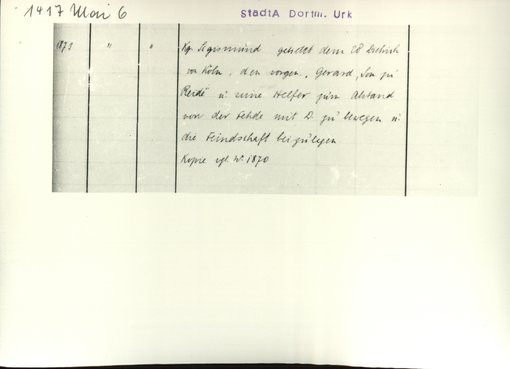 1417 Mai 6
StadtA Dortm. Urk
1872 " "
Kg. Sigismund gebietet dem EB Dietrich
von Köln, den vorgen., Gerard, Son zu
u seine Helfer zum Abstand
von der Fehde mit D. zu bewegen u
die Feindschaft beizulegen
Kopie vgl. Nr 1870